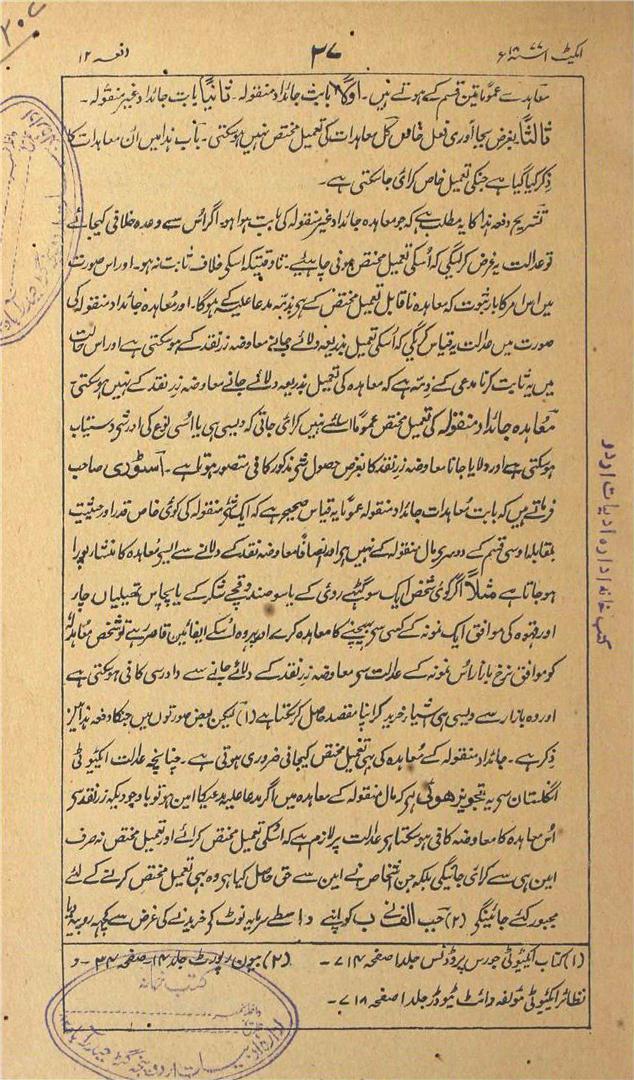 ایکٹ ۱ ۱۸۷۷ء
۳۷
دفعہ ۱۲
معاہدے عموماً تین قسم کے ہوتے ہیں۔ اولاً بابت جائداد منقولہ۔ ثانیاً بابت جائداد غیر منقولہ۔
ثالثاً بغرض بجا آوری فعل خاص کل معاہدات کی تعمیل مختص نہیں ہوسکتی۔ باب ہذا میں ان معاہدات کا
ذکر کیا گیا ہے جنکی تعمیل خاص کرائی جاسکتی ہے۔
تشریح دفعہ ہذا کا یہ مطلب ہے کہ جو معاہدہ جائداد غیر منقولہ کی بابت ہوا ہو۔ اگر اس سے وعدہ خلافی کیجائے
تو عدالت یہ فرض کرلیگی کہ اسکی تعمیل مختص ہونی چاہئے۔ تاوقتیکہ اسکے خلاف ثابت نہ ہو۔ اور اس صورت
میں اس امر کا بار ثبوت کہ معاہدہ ناقابل تعمیل مختص کے ہے بذمہ مدعاعلیہ کے ہوگا۔ اور معاہدہ جائداد منقولہ کی
صورت میں عدالت یہ قیاس کریگی کہ اسکی تعمیل بذریعہ دلائے جانے معاوضہ زر نقد کے ہوسکتی ہے اور اس حالت
میں یہ ثابت کرنا مدعی کے ذمہ ہے کہ معاہدہ کی تعمیل بذریعہ دلائے جانے معاوضہ زر نقد کے نہیں ہوسکتی
معاہدہ جائداد منقولہ کی تعمیل مختص عموماً اسلئے نہیں کرائی جاتی کہ ویسی ہی یا اسی نوع کی اور شی دستیاب
ہوسکتی ہے اور دلایا جانا معاوضہ زر نقد کا بغرض حصول شی مذکور کافی متصور ہوتا ہے۔ اسٹوری صاحب
فرماتے ہیں کہ بابت معاہدات جائداد منقولہ عموماً یہ قیاس صحیح ہے کہ ایک شئے منقولہ کی کوئی خاص قدر اور حیثیت
بمقابلہ اوسی قسم کے دوسری مال منقولہ کے نہیں ہے اور انصافاً معاوضہ نقد کے دلانے سے ایسے معاہدہ کا منشا پورا
ہوجاتا ہے مثلاً اگر کوئی شخص ایک سو گٹھے روئی کے یا سو صندوقچے شکر کے یا پچاس تھیلیاں چار
اور قہوہ کی موافق ایک نمونہ کے کسی سے بیچنے کا معاہدہ کرے اور پھر وہ اسکے ایفا میں قاصر رہے تو شخص معاہد لہ
کو موافق نرخ بازار اس نمونہ کے عدالت سے معاوضہ زر نقد کے دلائے جانے سے دادرسی کافی ہوسکتی ہے
اور وہ بازار سے ویسی ہی اشیاء خرید کر اپنا مقصد حاصل کرسکتا ہے (۱) لیکن بعض صورتوں میں جنکا دفعہ ہذا میں
ذکر ہے۔ جائداد منقولہ کے معاہدہ کی ہی تعمیل مختص کیجانی ضروری ہوتی ہے۔ چنانچہ عدالت اکئیوٹی
انگلستان سے یہ تجویز ہوئی ہے کہ مال منقولہ کے معاہدہ میں اگر مدعاعلیہ مدعی کا امین ہو تو باوجودیکہ زر نقد سے
اس معاہدہ کا معاوضہ کافی ہوسکتا ہے عدالت پر لازم ہے کہ اسکی تعمیل مختص کرائے اور تعمیل مختص نہ صرف
امین ہی سے کرائی جائیگی بلکہ جن اشخاص نے امین سے حق حاصل کیا ہے وہ بھی تعمیل مختص کرنے کے لئے
مجبور کئے جائینگے (۲) جب الف نے ب کو اپنے واسطے سرمایہ نوٹ کی خریدنے کی غرض سے کچھ روپیہ دیا
(۱) کتاب اکئیوٹی جورس پروڈنس جلد ۱ صفحہ ۷۱۴۔ (۲) بیون رپورٹ جلد ۱۴ صفحہ ۳۴۔ و
نظائر اکئیوٹی مولفہ وائٹ ٹیوڈر جلد ۱ صفحہ ۷۱۸۔
کتب خانہ ادارہ ادبیات اردو
کتب خانہ
ادارہ ادبیات اردو